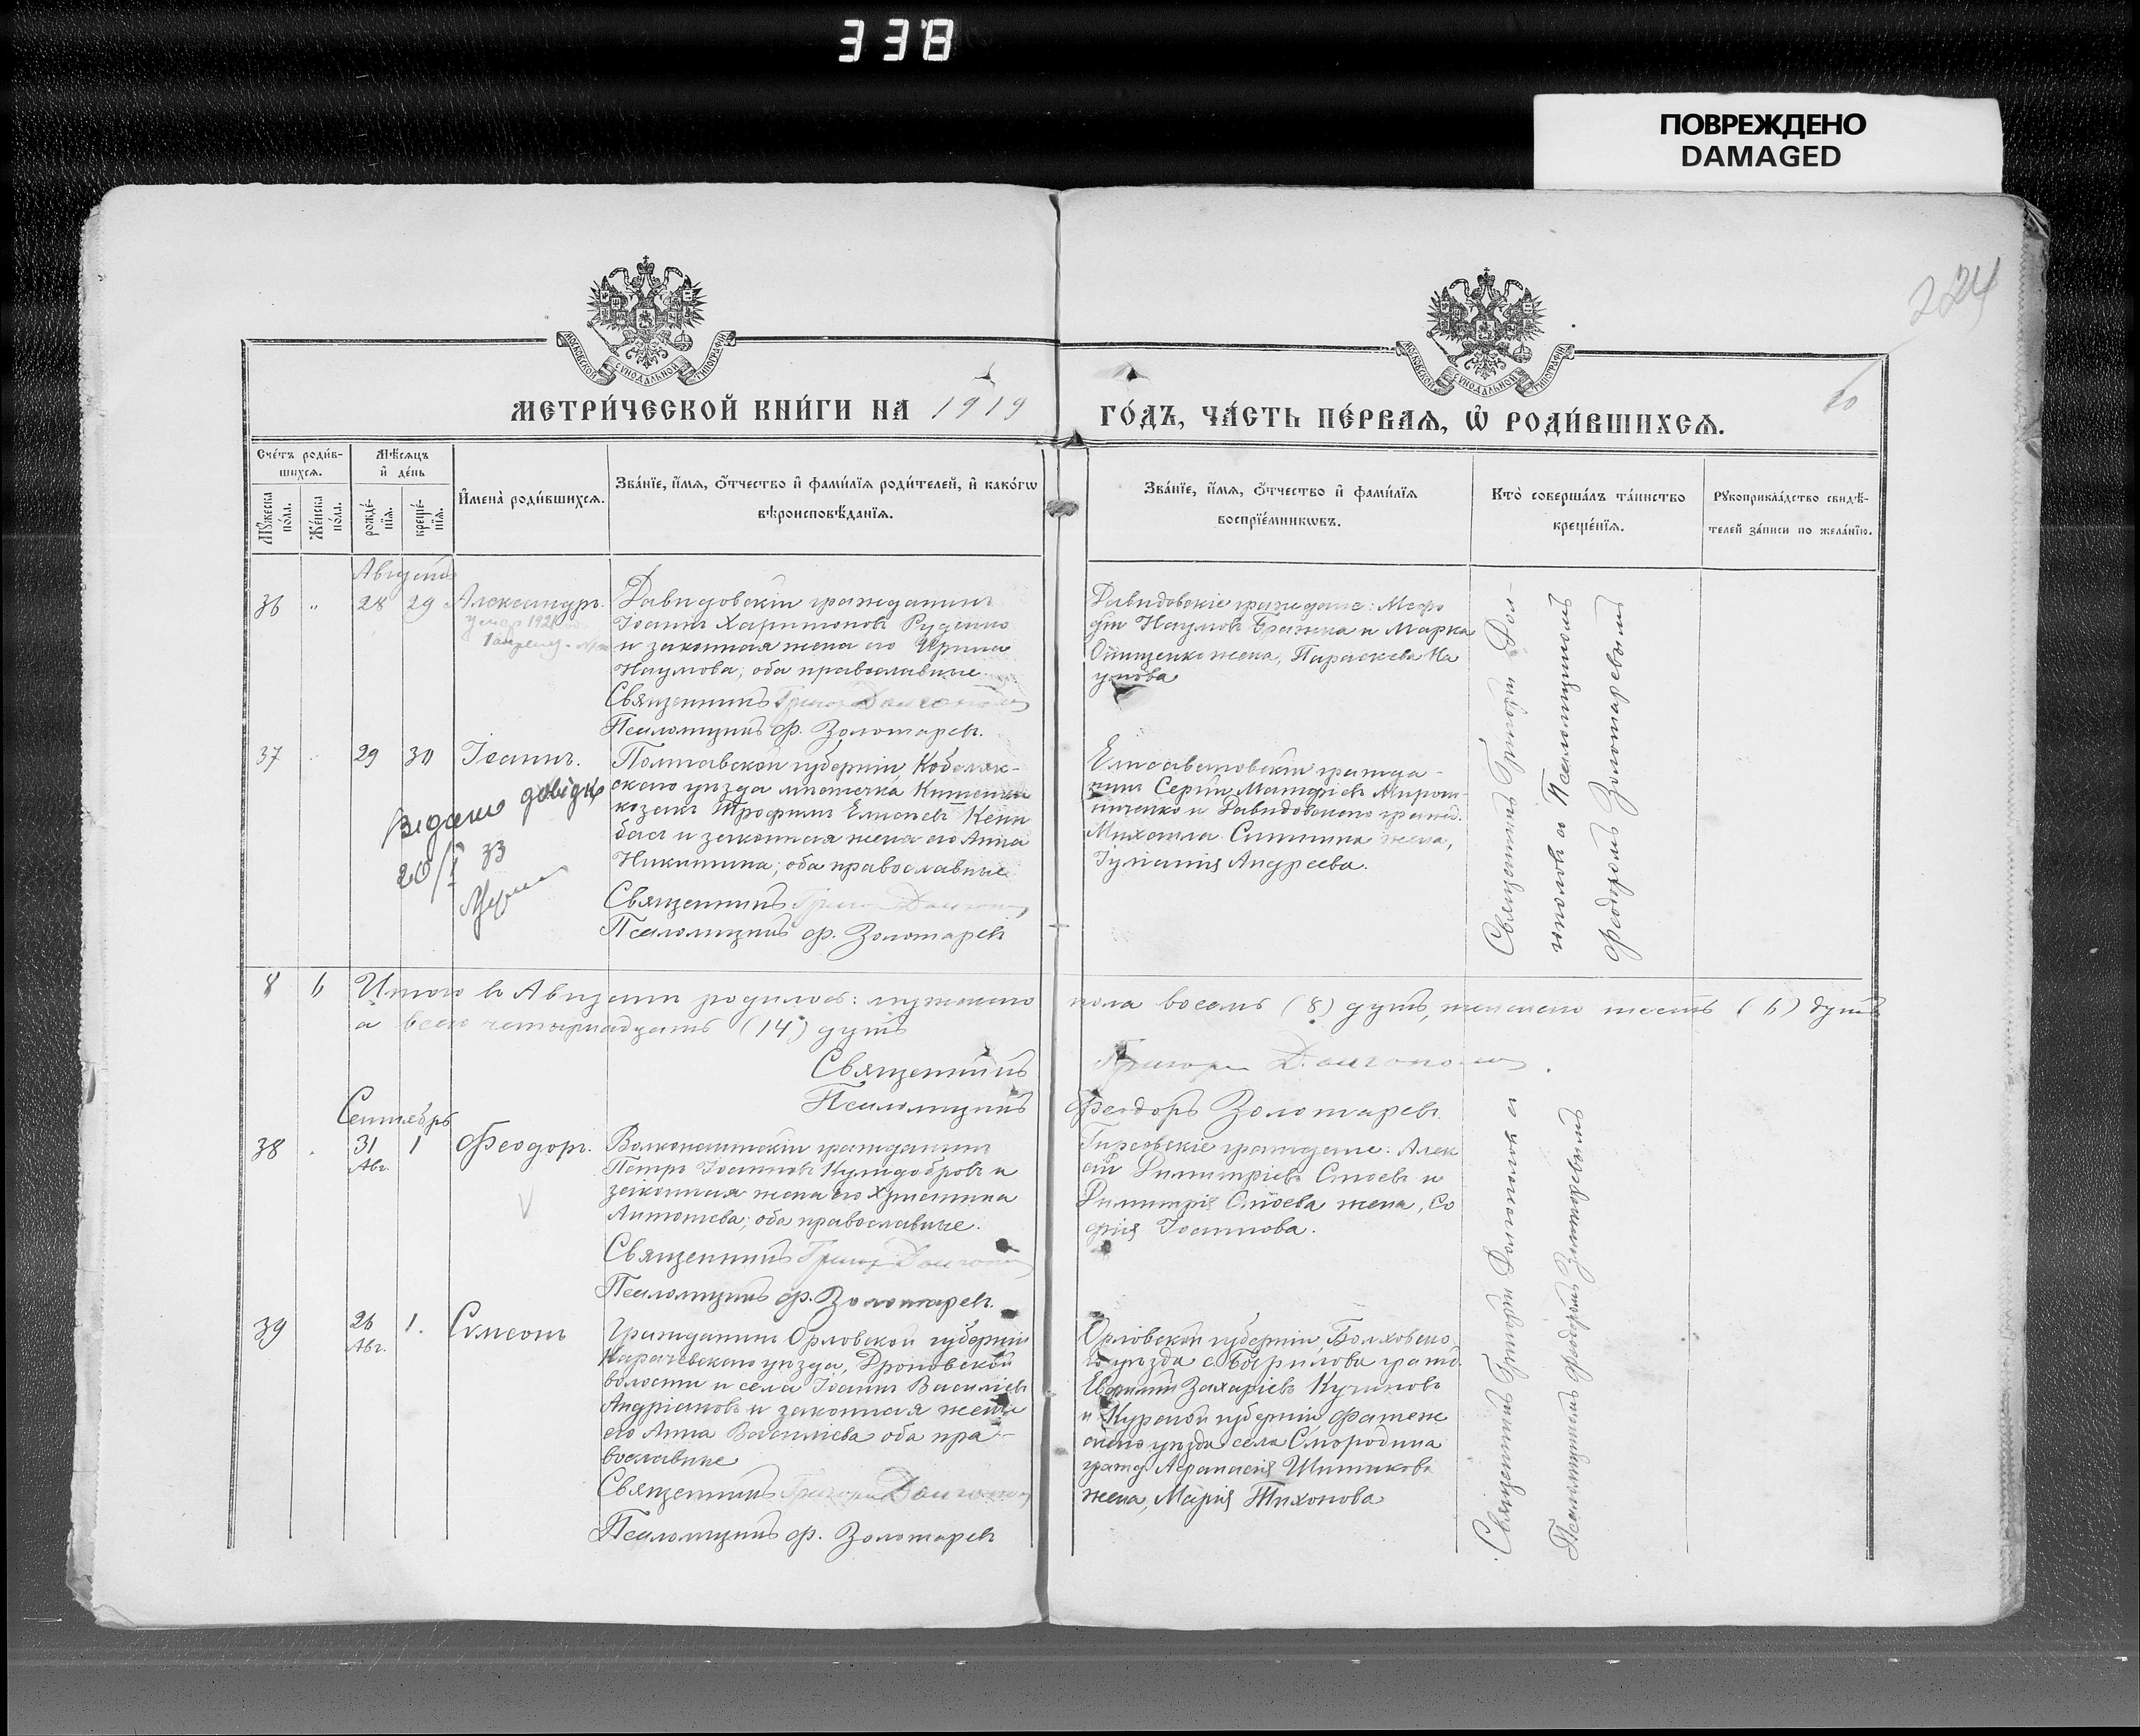 338
ПОВРЕЖДЕНО
DAMAGED
224
МОСКОВСКОЙ СѴНОДАЛЬНОЙ ТИПОГРАФІИ
МОСКОВСКОЙ СѴНОДАЛЬНОЙ ТИПОГРАФІИ
МЕТРИ́ЧЕСКОЙ КНИ́ГИ НА 1919
ГО́ДЪ, ЧА́СТЬ ПЕ́РВАѦ, Ѡ҆ РОДИ́ВШИХСѦ.
Сче́тъ роди́в-
шихсѧ.
Мꙋ́жеска по́ла.
Же́нска по́ла.
Мѣ́сѧцъ
и҆ де́нь
рожде́-
нїѧ.
креще́-
нїѧ.
И҆мена̀ роди́вшихсѧ.
Зва́нїе, и҆́мѧ, ѻ҆́тчество и҆ фами́лїѧ роди́телей, и҆ како́гѡ
вѣроисповѣ́данїѧ.
Зва́нїе, и҆́мѧ, ѻ҆́тчество и҆ фами́лїѧ
воспрїе́мникѡвъ.
Кто̀ соверша́лъ та́инство
креще́нїѧ.
Рꙋкоприкла́дство свидѣ́-
телей за́писи по жела́нїю.
Августъ
36 " 28 29 Александръ.
умер 1921
Давидовскій гражданинъ
Іоаннъ Харитоновъ Руденко
и законная жена его Ирина
Наумова; оба православные.
Священникъ Григорій Долгополовъ
Псаломщикъ Ф. Золотаревъ.
Давидовскіе граждане: Меѳо
дій Наумовъ Бражка и Марка
Онищенко жена, Параскева На
умова
Священникъ Григорій Дол-
гополовъ и Псаломщикомъ
Феодоромъ Золотаревымъ
37 29 30 Іоаннъ.
Видано довідку
20/I 33
Полтавской губерніи, Кобеляк-
скаго уѣзда мѣстечка
козакъ Трофимъ
и законная жена его Анна
Никитина; оба православные
Священникъ Григорій Долгополовъ
Псаломщикъ Ф. Золотаревъ
Елисаветовскій гражда-
нинъ Сергій Матфіевъ Мирош-
ниченко и Давидовскаго гражд.
Михаила жена,
Іуліанія Андреева.
8 6 Итого въ Августѣ родилось: мужескаго пола восемь (8) душъ, женскаго шесть (6) душъ
а всего четырнадцать (14) душъ
Священникъ Григорій Долгополовъ.
Псаломщикъ Феодоръ Золотаревъ
Сентябрь
38 31 1 Феодоръ.
Авг.
гражданинъ
Петръ Іоанновъ и
законная жена его Христина
Антонiева; оба православные.
Священникъ Григорій Долгополовъ
Псаломщикъ Ф. Золотаревъ.
Гирсовскіе граждане: Алек
сій Димитріевъ Стоевъ и
Димитрія Стоева жена, Со
фія Іоаннова.
Священникъ Григорій Долгополовъ и
Псаломщикъ Феодоромъ Золотаревымъ
39 26 1. Сѵмеонъ
Авг.
Гражданинъ Орловской губерніи
Карачевскаго уѣзда, Дроновской
волости и села Іоаннъ Василіевъ
Андріановъ и законная жена
его Анна Василіева оба пра-
вославные
Священникъ Григорій Долгополовъ
Псаломщикъ Ф. Золотаревъ
Орловской губерніи, Болховско
го уѣзда с. гражд.
Евфимій Захаріевъ
и Курской губерніи Фатеж
скаго уѣзда села Смородина
гражд. Аѳанасія
жена, Марія Тихонова